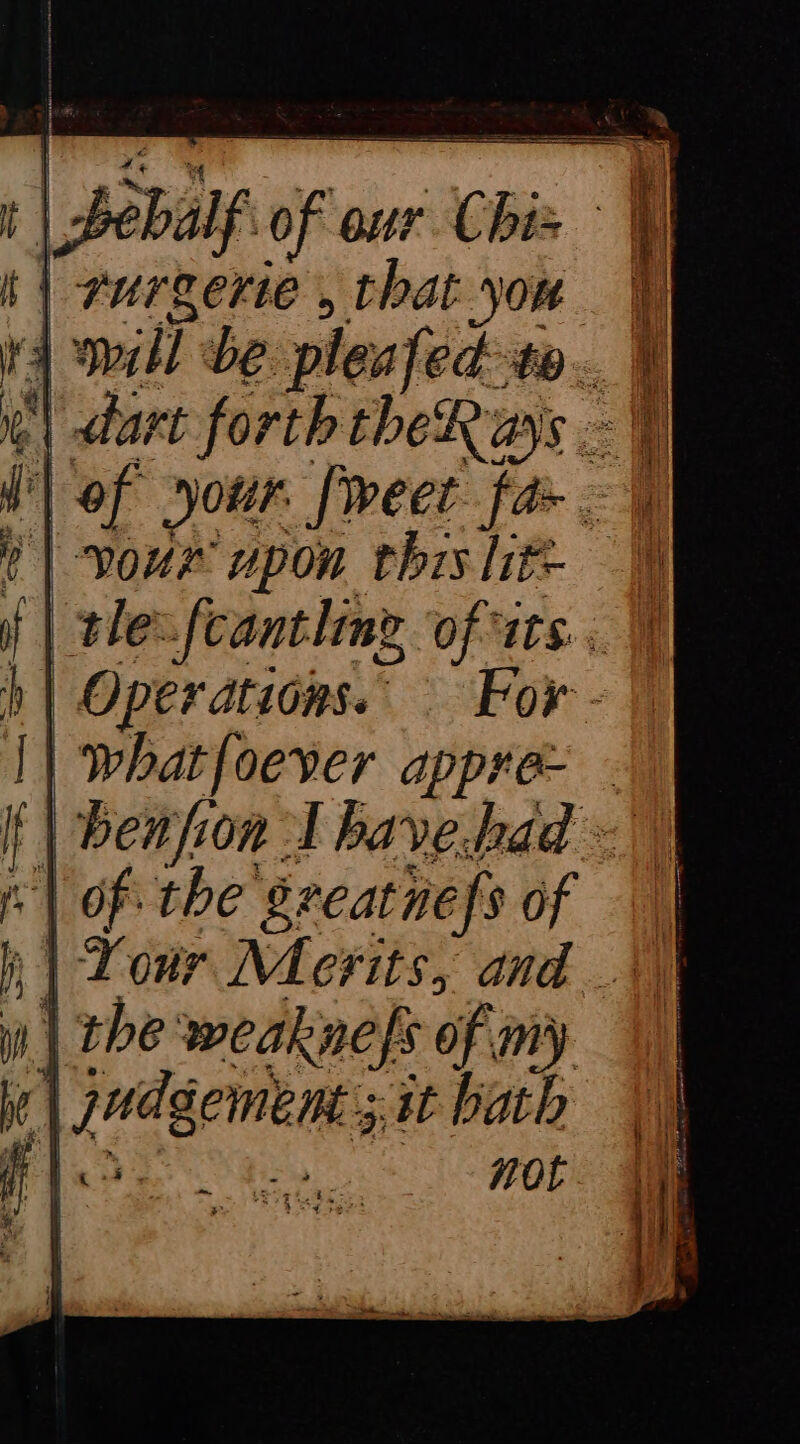 behalf of our Chi-
rurgerie, that you
will be pleaſed to
dart forth the Rays
of your ſweet fa-
vour upon this lit-
tle ſcantling of its
Operations. For
whatſoever appre-
henſion I have had
of the greatneſs of
Your Merits, and
the weakneſs of my
judgement; it hath
not